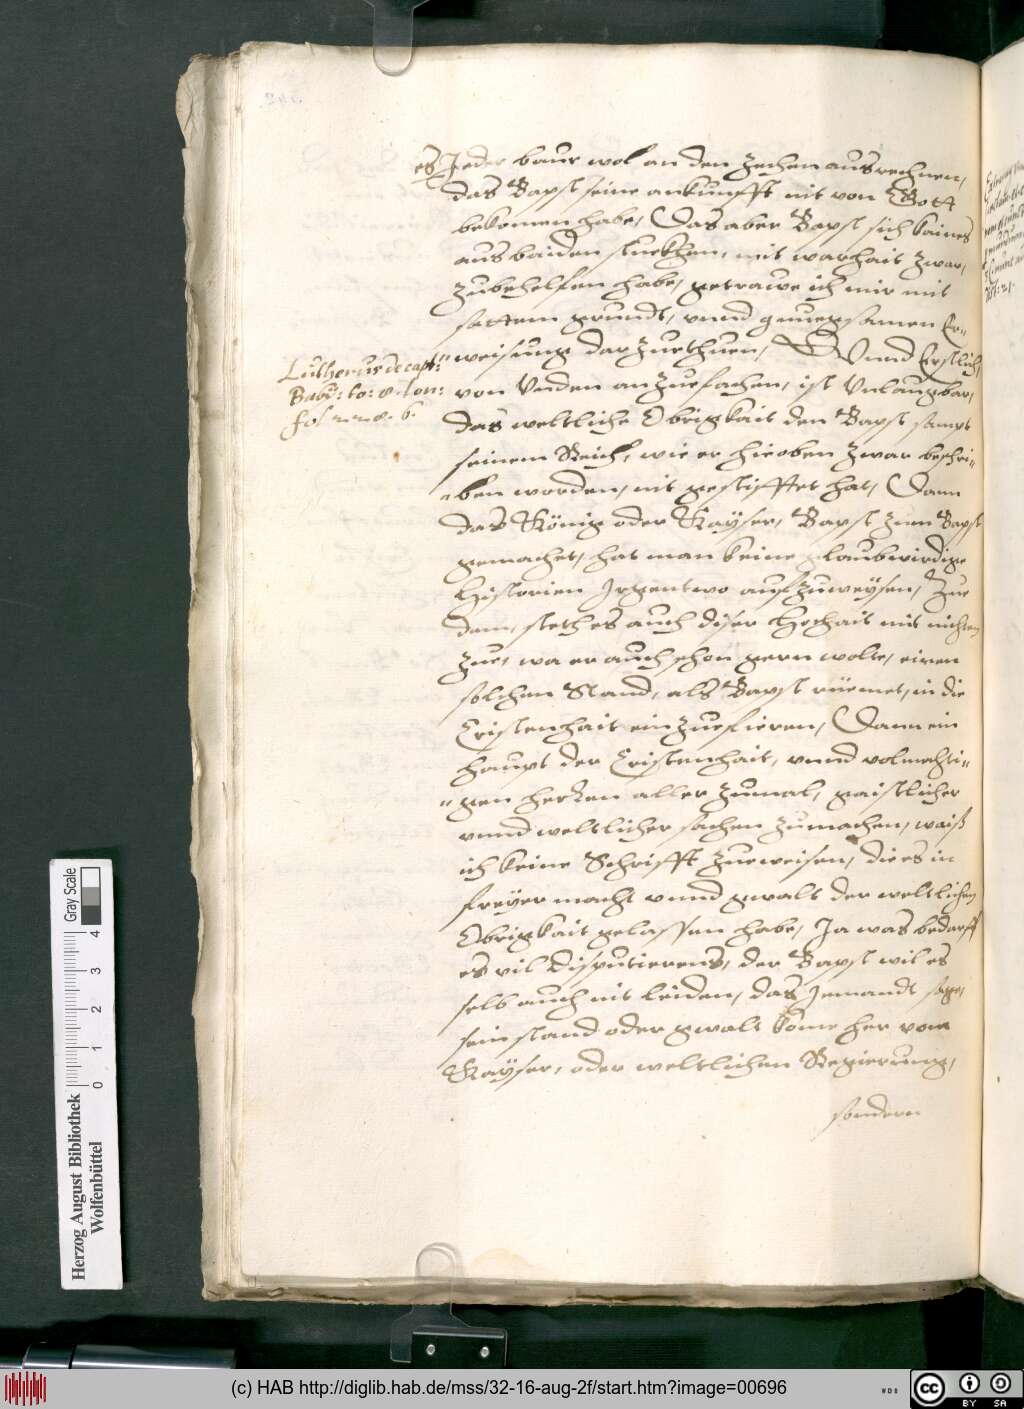 es Jeder baur wol an den zechen ausrechnen,
das Bapst seine ankunfft nit von Gott
bekomen habe, Das aber Bapst sich kaines
aus baiden stuckhen, mit warhait zwar,
zubehelffen habe, getrawe ich mir mit
sattem grundt, vnnd gnuegsamen Er-
Lutherus de capt:
Babÿ: to:
fol
weisung darzuethuen, Vnnd Erstlich,
von Vnden anzuefachen, ist Vnlaugbar,
das weltliche Obrigkait den Bapst sampt
seinem Reich, wie er hieoben zwar beschri-
-ben worden, nit gestifftet hat, Dann
das König oder Kayser, Bapst zum Bapst
gemachet, hat man keine glaubwirdige
Historien Jrgentwo aufzuweÿsen, Zue
dem, steth es auch diser Hochait mit nichten
zue, wa er auch schon gern wolte, einen
solchen Stand, als Bapst rüemet, in die
Cristenhait einzuefieren, Dann ein
haupt der Cristenhait, vnnd volmechti-
-gen herren aller zumal, gaistlicher
vnnd weltlicher sachen zumachen, waiß
ich keine Schrifft zueweisen, die es in
freyer macht vnnd gwalt der weltlichen
Obrigkait gelassen habe, Ja was bedarff
es vil disputierens, der Bapst wil es
selb auch nit leiden, das Jemandt sage,
sein stand oder gwalt kome her vom
Kayser, oder weltlichen Regierung,
sondern
Herzog August Bibliothek
Wolfenbüttel
0 1 2 3 4
Gray Scale
(c) HAB http://diglib.hab.de/mss/32-16-aug-2f/start.htm?image=00696
WDB
cc
BY SA